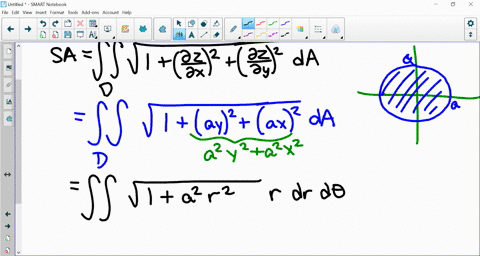 Untitled * - SMART Notebook
File Edit View Insert Format Tools Add-ons Account Help
SA = ∬_D √(1 + (∂z/∂x)² + (∂z/∂y)²) dA
= ∬_D √(1 + (ay)² + (ax)²) dA
a²y² + a²x²
= ∬ √(1 + a²r²) r dr dθ
a
a